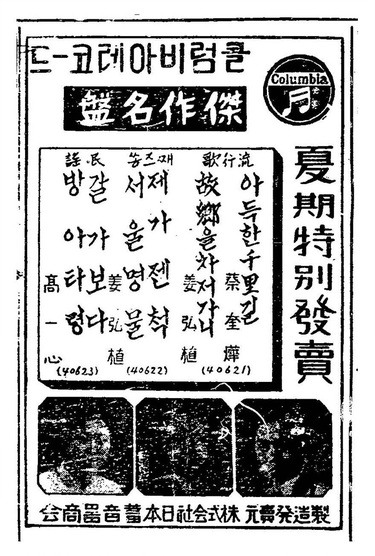 콜럼비아레코-드
Columbia
傑作名盤
夏期特別發賣
流行歌
아득한千里길
蔡奎燁
故鄕을차저가니
姜弘植
(40621)
째즈송
제가젠척
서울명물
姜弘植
(40622)
民謠
갈가보다
방아타령
高一心
(40623)
製造発賣元 株式会社日本蓄音器商会